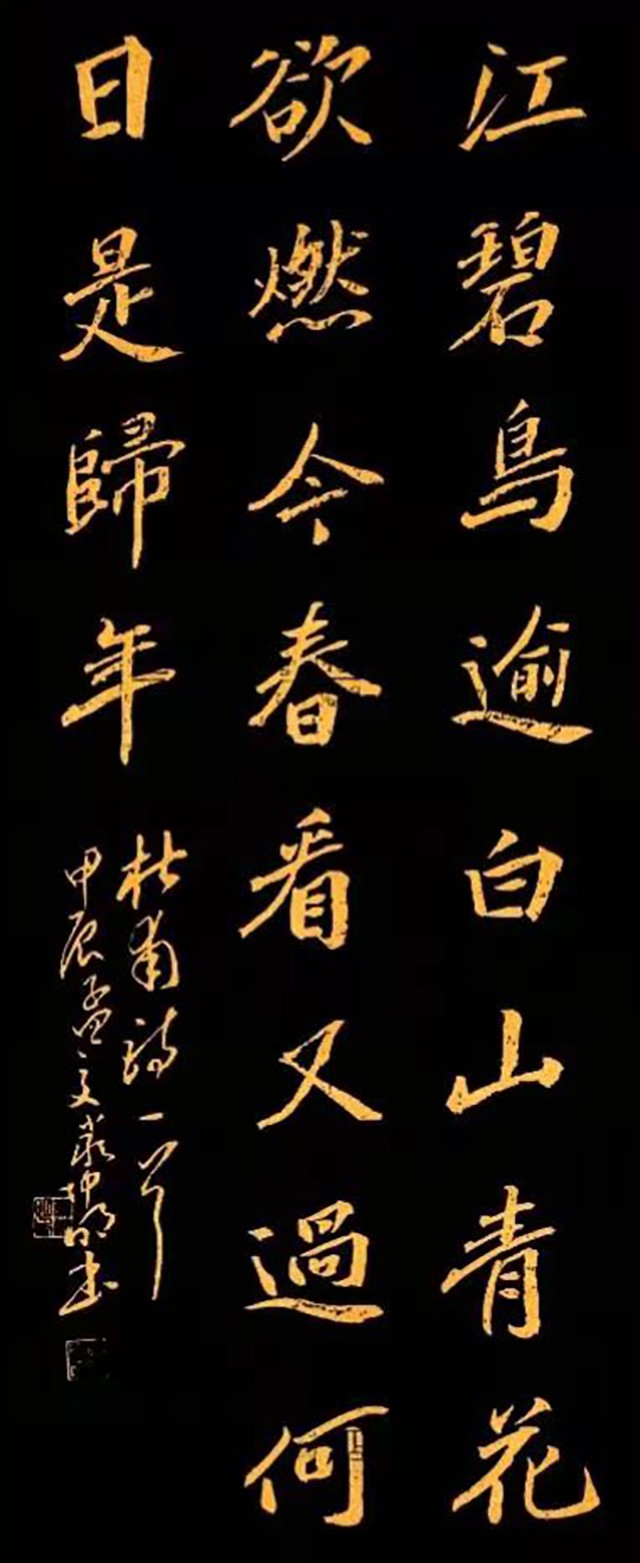 江碧鳥逾白山青花
欲燃今春看又過何
日是歸年
杜甫詩一首
甲辰孟夏嚴仲明書